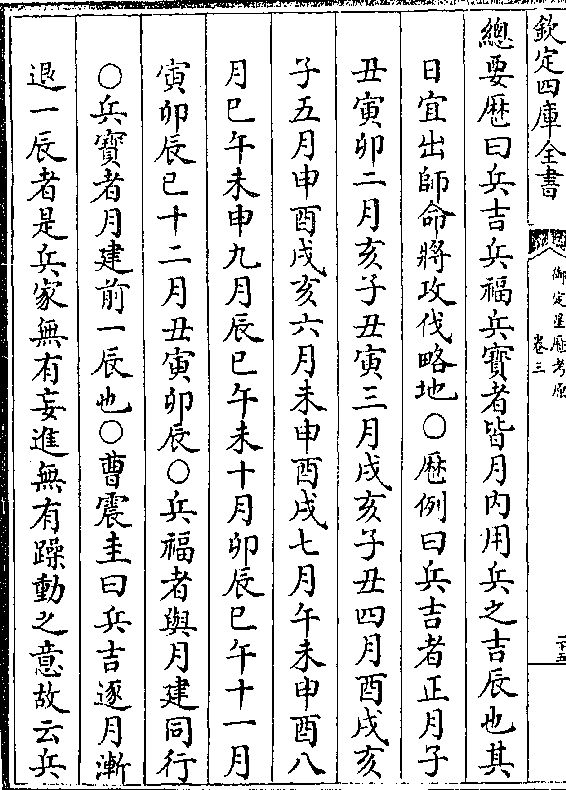 欽定四庫全書
御定星歷考原
卷三
二十五
總要歴曰兵吉兵福兵寳者皆月内用兵之吉辰也其
日宜出師命將攻伐略地○歴例曰兵吉者正月子
丑寅卯二月亥子丑寅三月戌亥子丑四月酉戌亥
子五月申酉戌亥六月未申酉戌七月午未申酉八
月巳午未申九月辰巳午未十月卯辰巳午十一月
寅卯辰巳十二月丑寅卯辰○兵福者與月建同行
○兵寳者月建前一辰也○曹震圭曰兵吉逐月漸
退一辰者是兵家無有妄進無有躁動之意故云兵